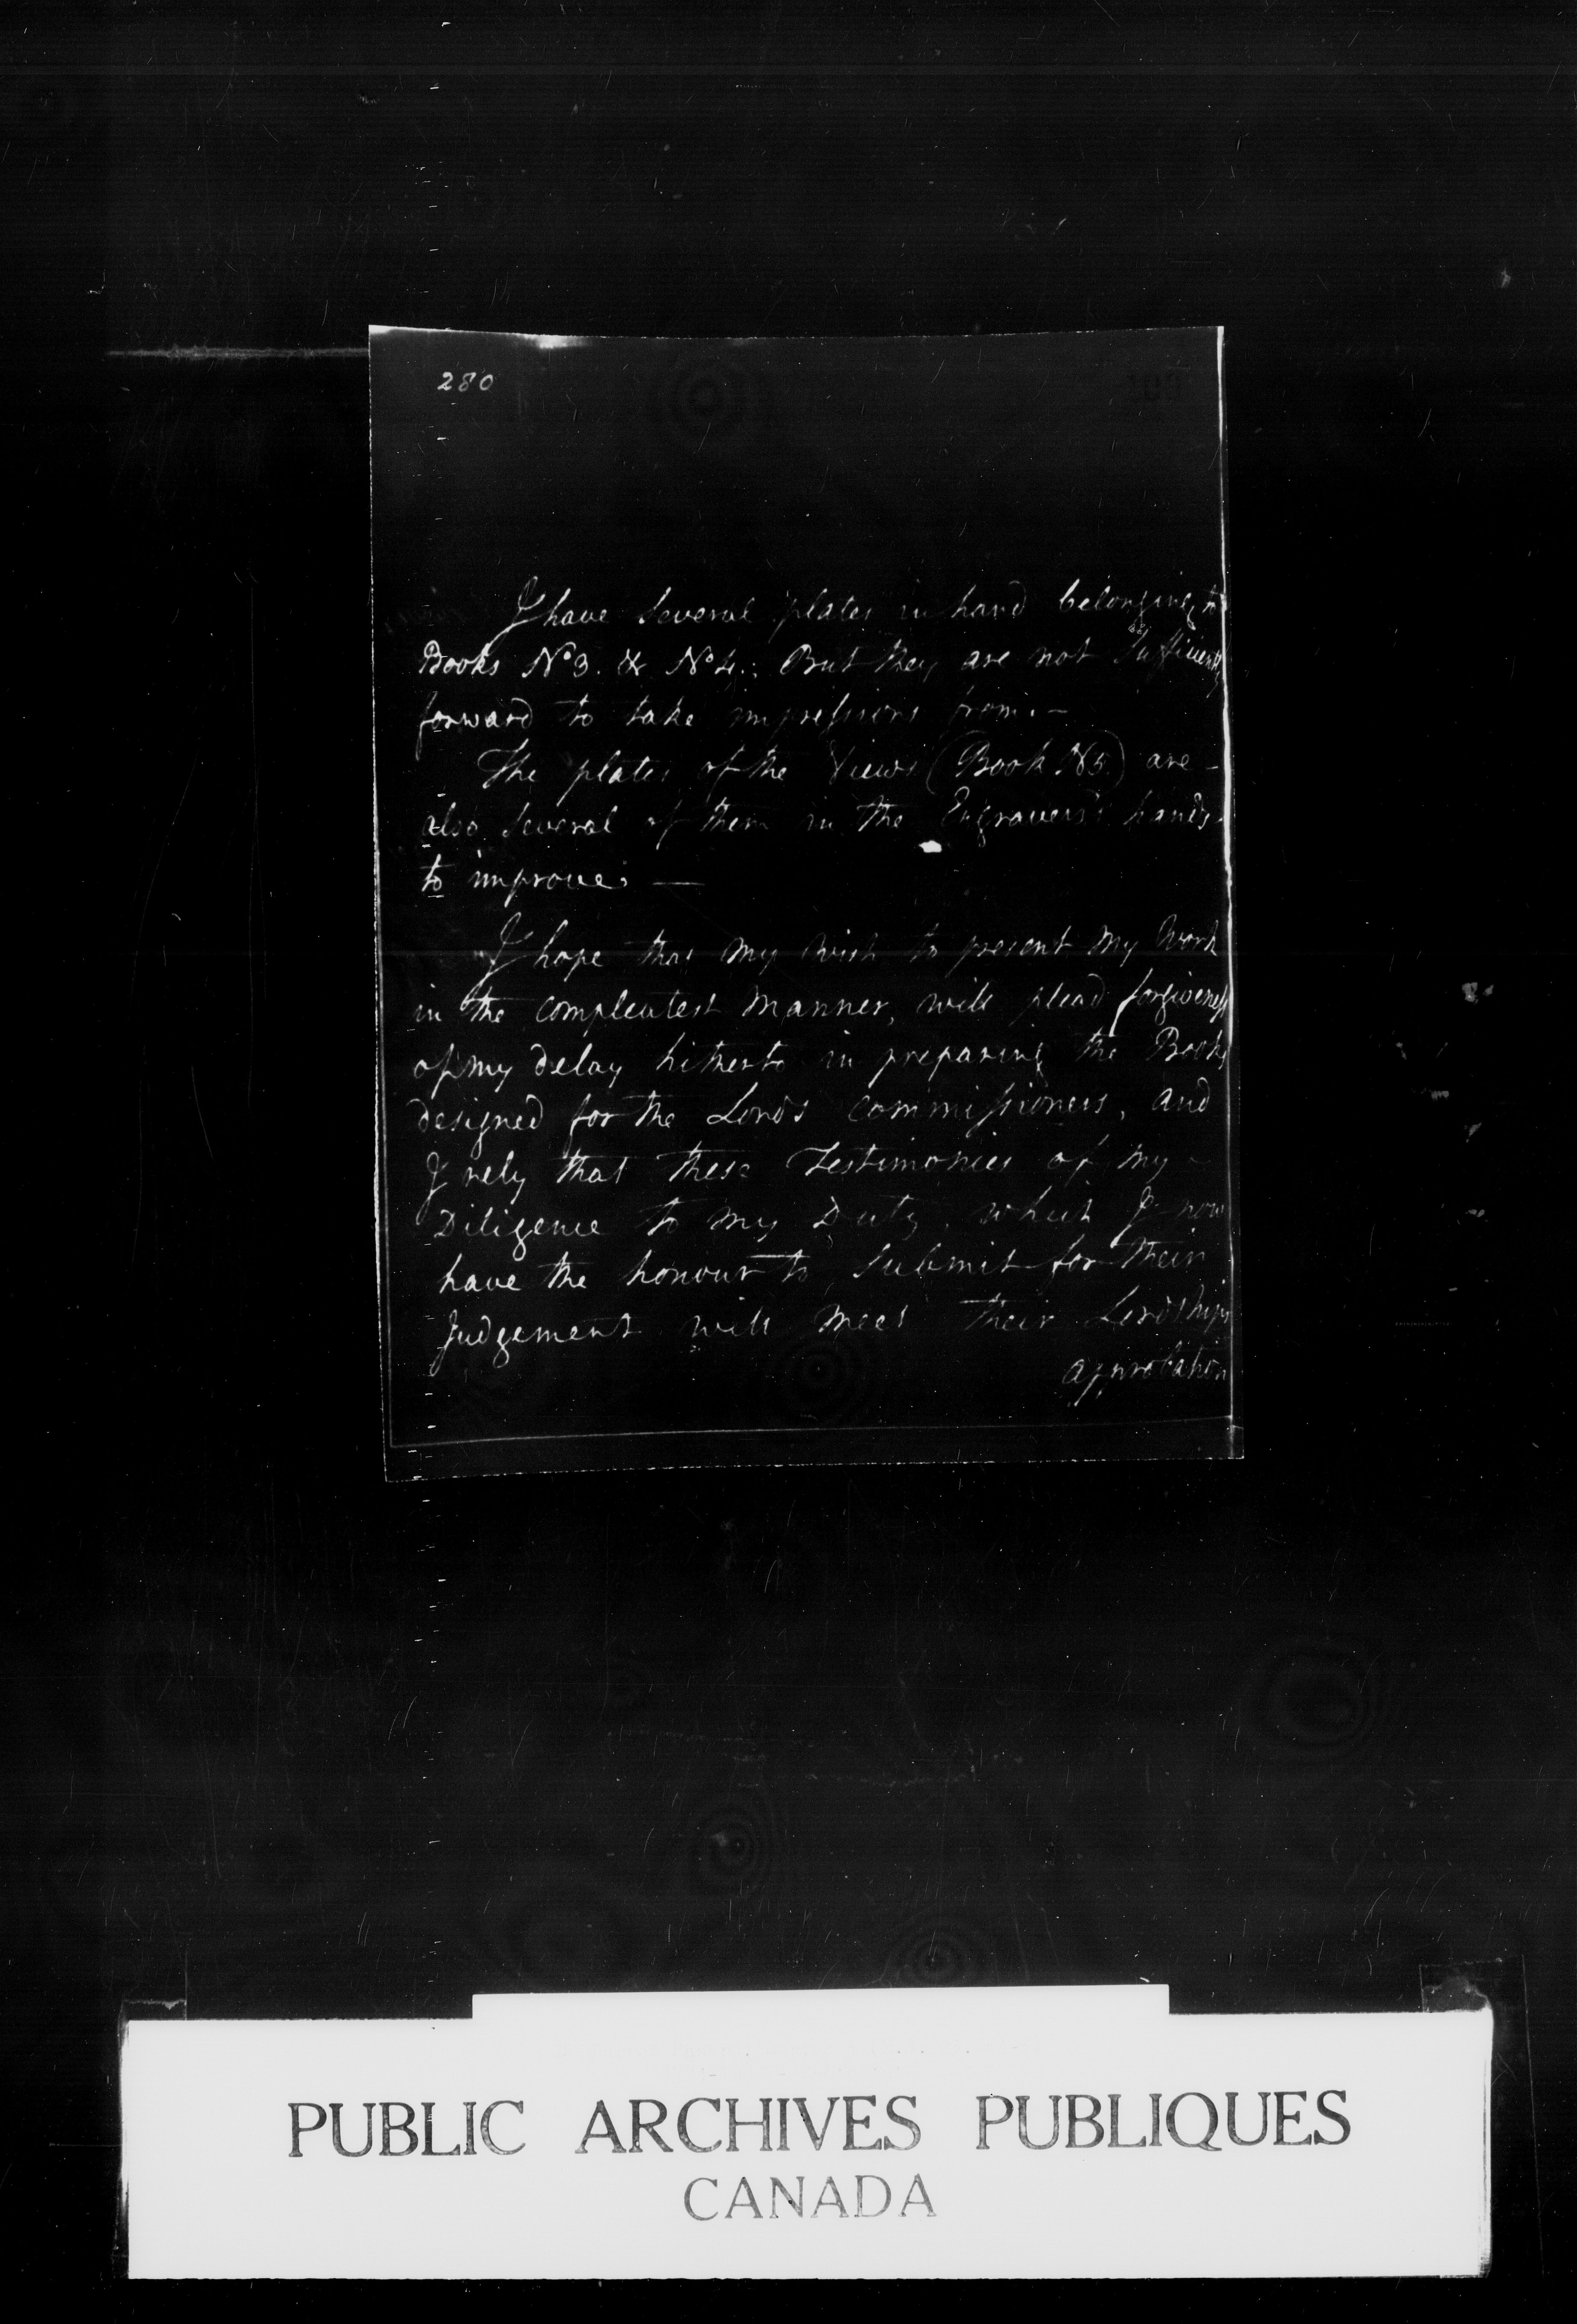 280
I have several plates in hand belonging to
Books No 3. & No 4.: But they are not sufficiently
forward to take impressions from. —
The plates of the Views (Book No 5.) are –
also several of them in the Engravers hands
to improve. —
I hope that my wish to present my Work
in the compleatest manner, will plead forgiveness
of my delay hitherto in preparing the Books
designed for the Lords Commissioners, and
I rely that these Testimonies of my –
Diligence to my Duty, which I now
have the honour to submit for their
Judgement will meet their Lordships
approbation
PUBLIC ARCHIVES PUBLIQUES
CANADA